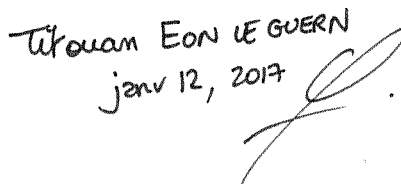 Titouan EON LE GUERN
janv 12, 2017